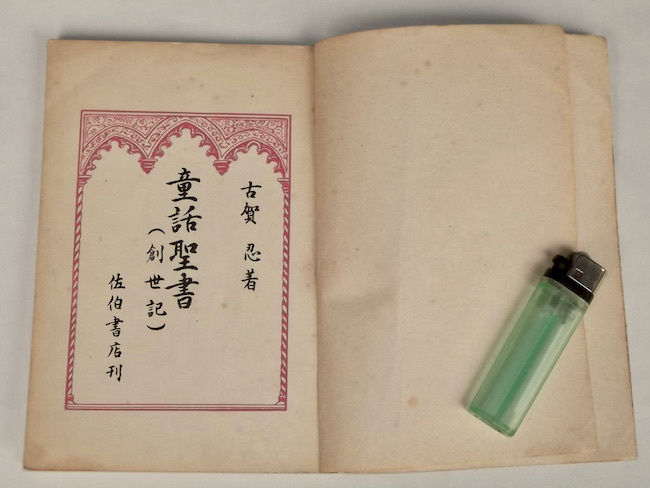 古賀 忍著
童話聖書
(創世記)
佐伯書店刊